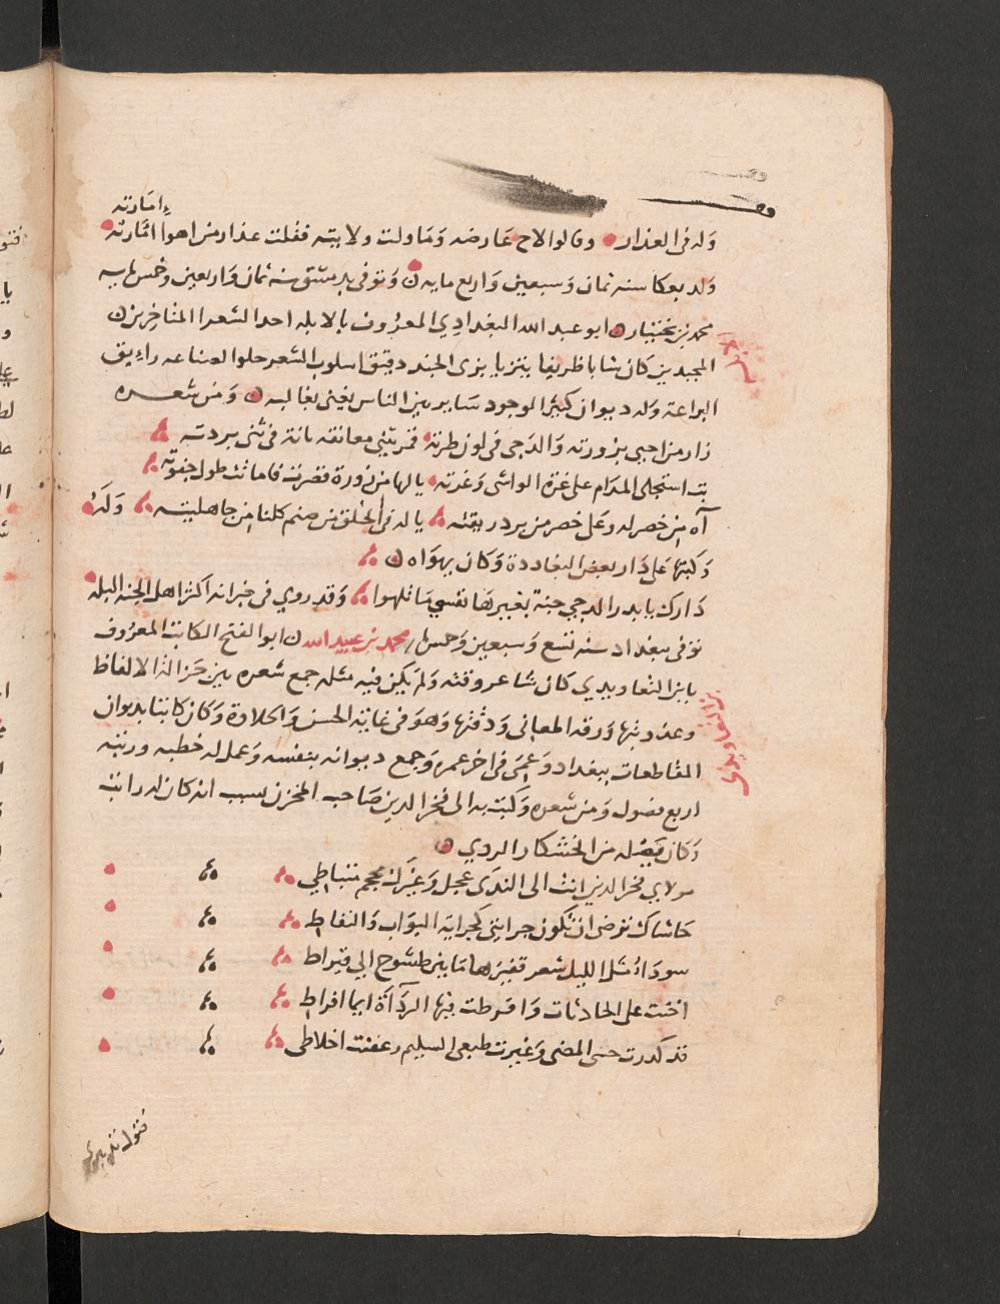 وقف
وقف
إمارته
وله في العذار وقالوا لاح عارضه وما ولت ولايته فقلت عذار من اهوا امارته
ولد بعكا سنه ثمان وسبعين واربع مايه وتوفي بدمشق سنه ثمان واربعين وخمس مايه
محمد بن بختيار ابو عبد الله البغدادي المعروف بالابله احد الشعرا المتاخرين
الابله
المجيدين كان شابا ظريفا يتزيا بزي الجند دقيق اسلوب الشعر حلوا لصناعه رايق
البراعة وله ديوان كبير الوجود ساير بين الناس يغني بغالبه ومن شعره
زار من احيى بزورته والدجى في لون طرته قمر يثني معانقه بانة في ثني بردته
بت استجلى المدام على غرة الواشي وغرته يا لها من زورة قصرت فاماتت طول جفوته
آه من خصر له وعلى خصر من برد ريقته يا له في الخلق من صنم كلنا من جاهليته وله
وكتبها على دار بعض البغاددة وكان يهواه
دارك يا بدر الدجي جنة بغيرها نفسي ما تلهوا وقد روي في خبر انه اكثر اهل الجنه البله
توفي ببغداد سنه تسع وسبعين وخمس محمد بن عبيد الله ابو الفتح الكاتب المعروف
بابن التعاويذي كان شاعر وقته ولم يكن فيه مثله جمع شعره بين جزالة الالفاظ
بن التعاويذي
وعذوبتها ورقه المعاني ودقتها وهو في غاية الحسن والحلاوة وكان كاتبا بديوان
المقاطعات ببغداد وعمى في اخر عمره وجمع ديوانه بنفسه وعمل له خطبه ورتبه
اربع فصول ومن شعره وكتب به الى فخر الدين صاحب المخزن بسبب انه كان له راتب
وكان يصله من الخشكار الردي
مولاي فخر الدين انت الى الندى عجل وغيرك محجم متباطي
حاشاك ترضى ان تكون جرايتي كجراية البواب والنفاط
سوداء مثل الليل سعر قفيزها ما بين طسوج الي قيراط
اخنت على الحادثات وافرطت فيها الرداءة ايما افراط
قد كدرت حسي المضي وغيرت طبعي السليم وعفنت اخلاطي
فتول تدبيري